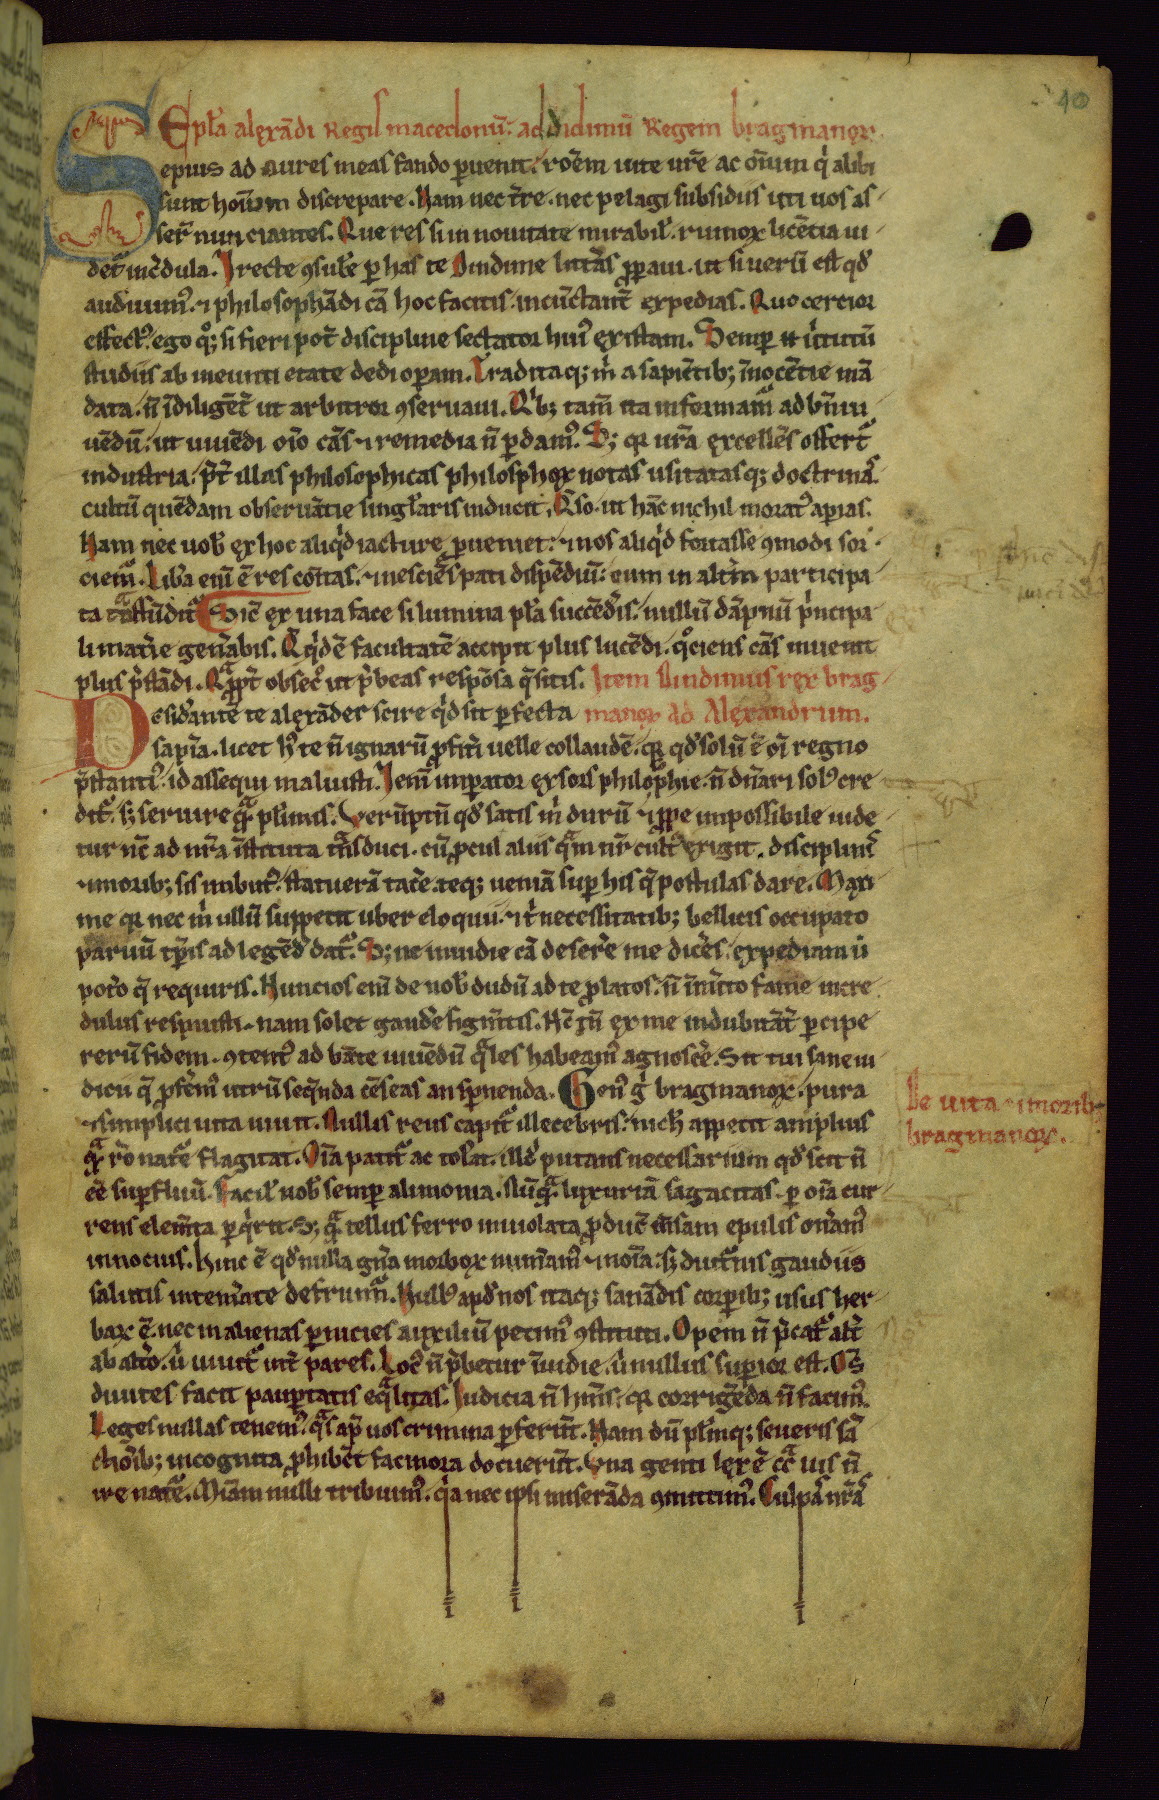 10
Epl̃a alexãdi Regis macedonũ. ad didimũ Regem bragmanoꝝ
Sepius ad aures meas fando ꝑuenit. roẽm uite ur̃e ac om̃iun q̇ alibi
sunt hoĩum discrepare. Nam nec tr̃re. nec pelagi subsidiis uti uos as
ser̃t nunciantes. Que res si in nouitate mirabil̃. rumoꝝ licẽtia ui
det̃ incr̃dula. Irecte ꝯsul̃e ꝑ has te dindime litt̃as ꝓꝑaui. ut si uerũ est qđ
audiuimꝰ. ⁊ philosophãdi cã hoc facitis. incũctant̃ expedias. Quo cercior
effectꝰ. ego qͦꝫ si fieri pot̃ discipline sectator huiꝰ existam. Semꝑ .n. ũtutũ
studiis ab ineunti etate dedi oꝑam. Traditaqꝫ m̓ a sapiẽtibꝫ īnocẽtie mã
data. ñ ĩdiligẽt̃ ut arbitror ꝯseruaui. Q̓bꝫ tam̃ ita informamͬ ad bñ ui
uẽdũ. ut uiuẽdi oĩo cãs ⁊ remedia ñ ꝑdamꝰ. Sꝫ qꝛ ur̃a excellẽs offertͬ
industria. p̃t̃ illas philosophicas philosphoꝝ notas usitatasqꝫ doctrinas.
cultũ quẽdam obseruãtie singl̃aris inducit. Q̃so. ut hãc nichil moratꝰ aꝑias.
Nam nec uob̃ ex hoc aliq̓d iacture ꝓueniet. ⁊ nos aliq̓d fortasse ꝯmodi sor
ciemͬ. Lib̃a eni ẽ res com̃tas. ⁊ nesciẽs pati dispẽdiũ. cum in altm̃ participa
ta trãsfũditͬ. Sic̃ ex una face si lumina pl̃a succẽdis. nullũ dãpnũ p̓ncipa
li mat̃ie gen̄abis. Q̃q̓dẽ facultatẽ accipit plus lucẽdi. qͦciens cãs inuenit
plus p̃stãdi. Qͣꝓpt̃ obsecͦ ut p̃beas respõsa q̃sitis. Item dindimus rex brag
Desid̃antẽ te alexãder scire q̓d sit ꝑfecta manoꝝ ad Alexandrum.
sapĩa. licet hͥ te ñ ignarũ ꝓfit̃i uelle collaudẽ. qꝛ qđ solũ ẽ oĩ regno
p̃stantiꝰ. id assequi maluisti. Iem̃ imꝑator exsors philosophie. ñ dñari solꝰ cre
dit̃. sꝫ seruire qͣꝫ pl̃imis. Verũptñ qđ satis m̓ durũ ⁊ ꝓpe impossibile uide
tur nc̃ ad nr̃a ĩstituta trãsduci. cũ ꝓcul aliis qͣm nr̃ cultꝰ exigit. disciplinis
⁊ moribꝫ sis imbutꝰ. statuerã tac̃e. teqꝫ ueniã suꝑ his q̃ postulas dare. Maxi
me qꝛ nec m̓ ullũ suppetit uber eloquii. ⁊ t̓ necessitatibꝫ bellicis occupato
paruũ tꝑis ad legẽđ datͬ. Sꝫ ne inuidie cã deser̃e me dic̃es. expediam ũ
pot̃o q̃ requiris. Nuncios eni de nob̃ dudũ ad te ꝓlatos. ñ ĩm̓ito fame incre
dulus respuisti. nam solet gaud̃e figm̃tis. Hc̃ t̄ñ ex me indubitãt̃ ꝑcipe
rerũ fidem. ꝯtentꝰ ad bãte uiuẽdũ q̃les habeamꝰ agnosc̃e. Sit tui sane iu
dicii q̃ ꝓfẽmꝰ utrũ seq̃nda cẽseas an sꝑnenda. Genꝰ g̓ bragmanoꝝ. pura
⁊ simplici uita uiuit. Nullis reus capitͬ illecebris. nich̃ appetit amplius
qͣꝫ rõ nat̃e flagitat. Oĩa patitͬ ac tol̃at. illđ putans necessarium qđ scit ñ
eẽ suꝑfluũ. Facil̃ nob̃ semꝑ alimonia. Nũqͣ luxuriã sagacitas. ꝑ oĩa cur
rens elem̃ta ꝑq̓rit. Sꝫ qͣ tellus ferro inuiolata ꝓduc̃ m̃sam epulis on̄amꝰ
innociis. Hinc ẽ qđ nulla gn̄a morboꝝ nuñamꝰ ⁊ noĩa. sꝫ diut̃nis gaudiis
salutis intem̃ate defruimͬ. Nullꝰ apđ nos itaqꝫ sanãdis corꝑibꝫ usus her
baꝝ ẽ. nec in alienas ꝑnicies auxiliũ petimꝰ ꝯstituti. Opem ñ p̃catͬ alt̃
ab alt̃o. ũ uiuitͬ int̃ pares. Locꝰ ñ p̃betur ĩuidie. ũ nullus suꝑior est. Om̃s
diuites facit pauꝑtatis eqͣlitas. Iudicia ñ hm̃s. qꝛ corrigẽda ñ facimꝰ.
Leges nullas tenemꝰ. qͣs ap̃ uos crimina ꝑferũt. Nam dũ pl̃imqꝫ seueris sã
ctiõibꝫ incognita ꝓhibẽt facinora docuerũt. Vna genti lex ẽ cc̃ͣ uis ñ
ire nat̃e. Miãm nulli tribuimꝰ. q̓a nec ipsi miserãda ꝯmittimꝰ. Culpãs nr̃as
De uita ⁊ moribꝫ
bragmanoꝝ.